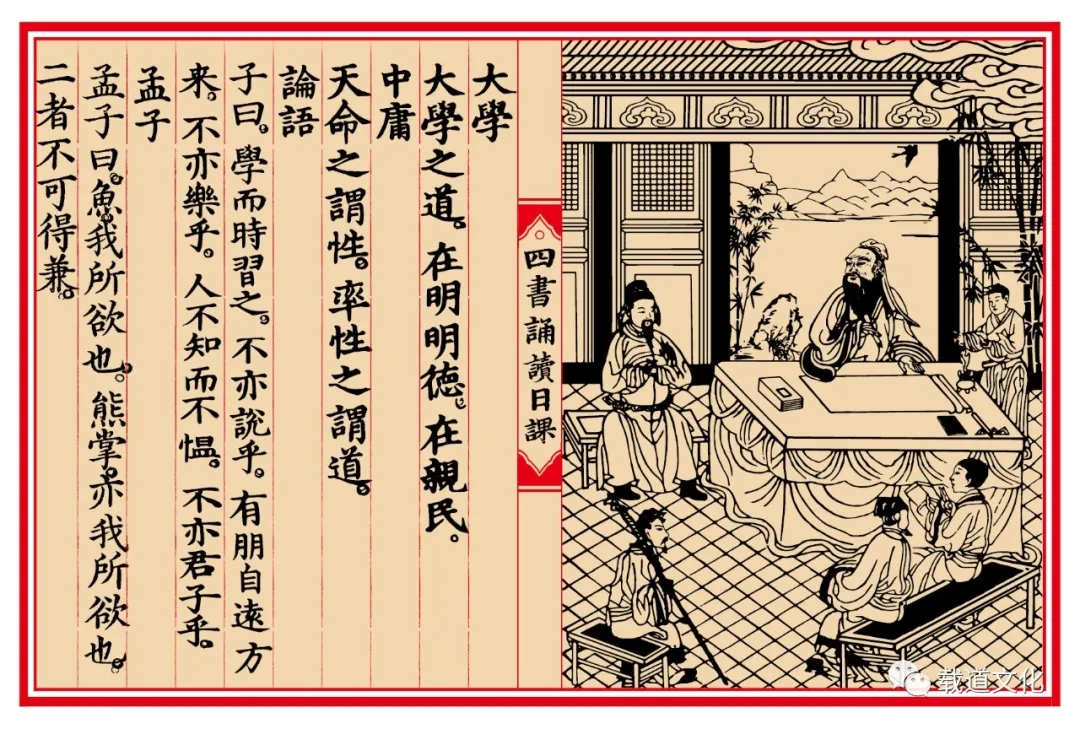 四書誦讀日課
大學
大學之道。在明明德。在親民。
中庸
天命之謂性。率性之謂道。
論語
子曰。學而時習之。不亦說乎。有朋自遠方
來。不亦樂乎。人不知而不慍。不亦君子乎。
孟子
孟子曰。魚我所欲也。熊掌。亦我所欲也。
二者不可得兼。
载道文化